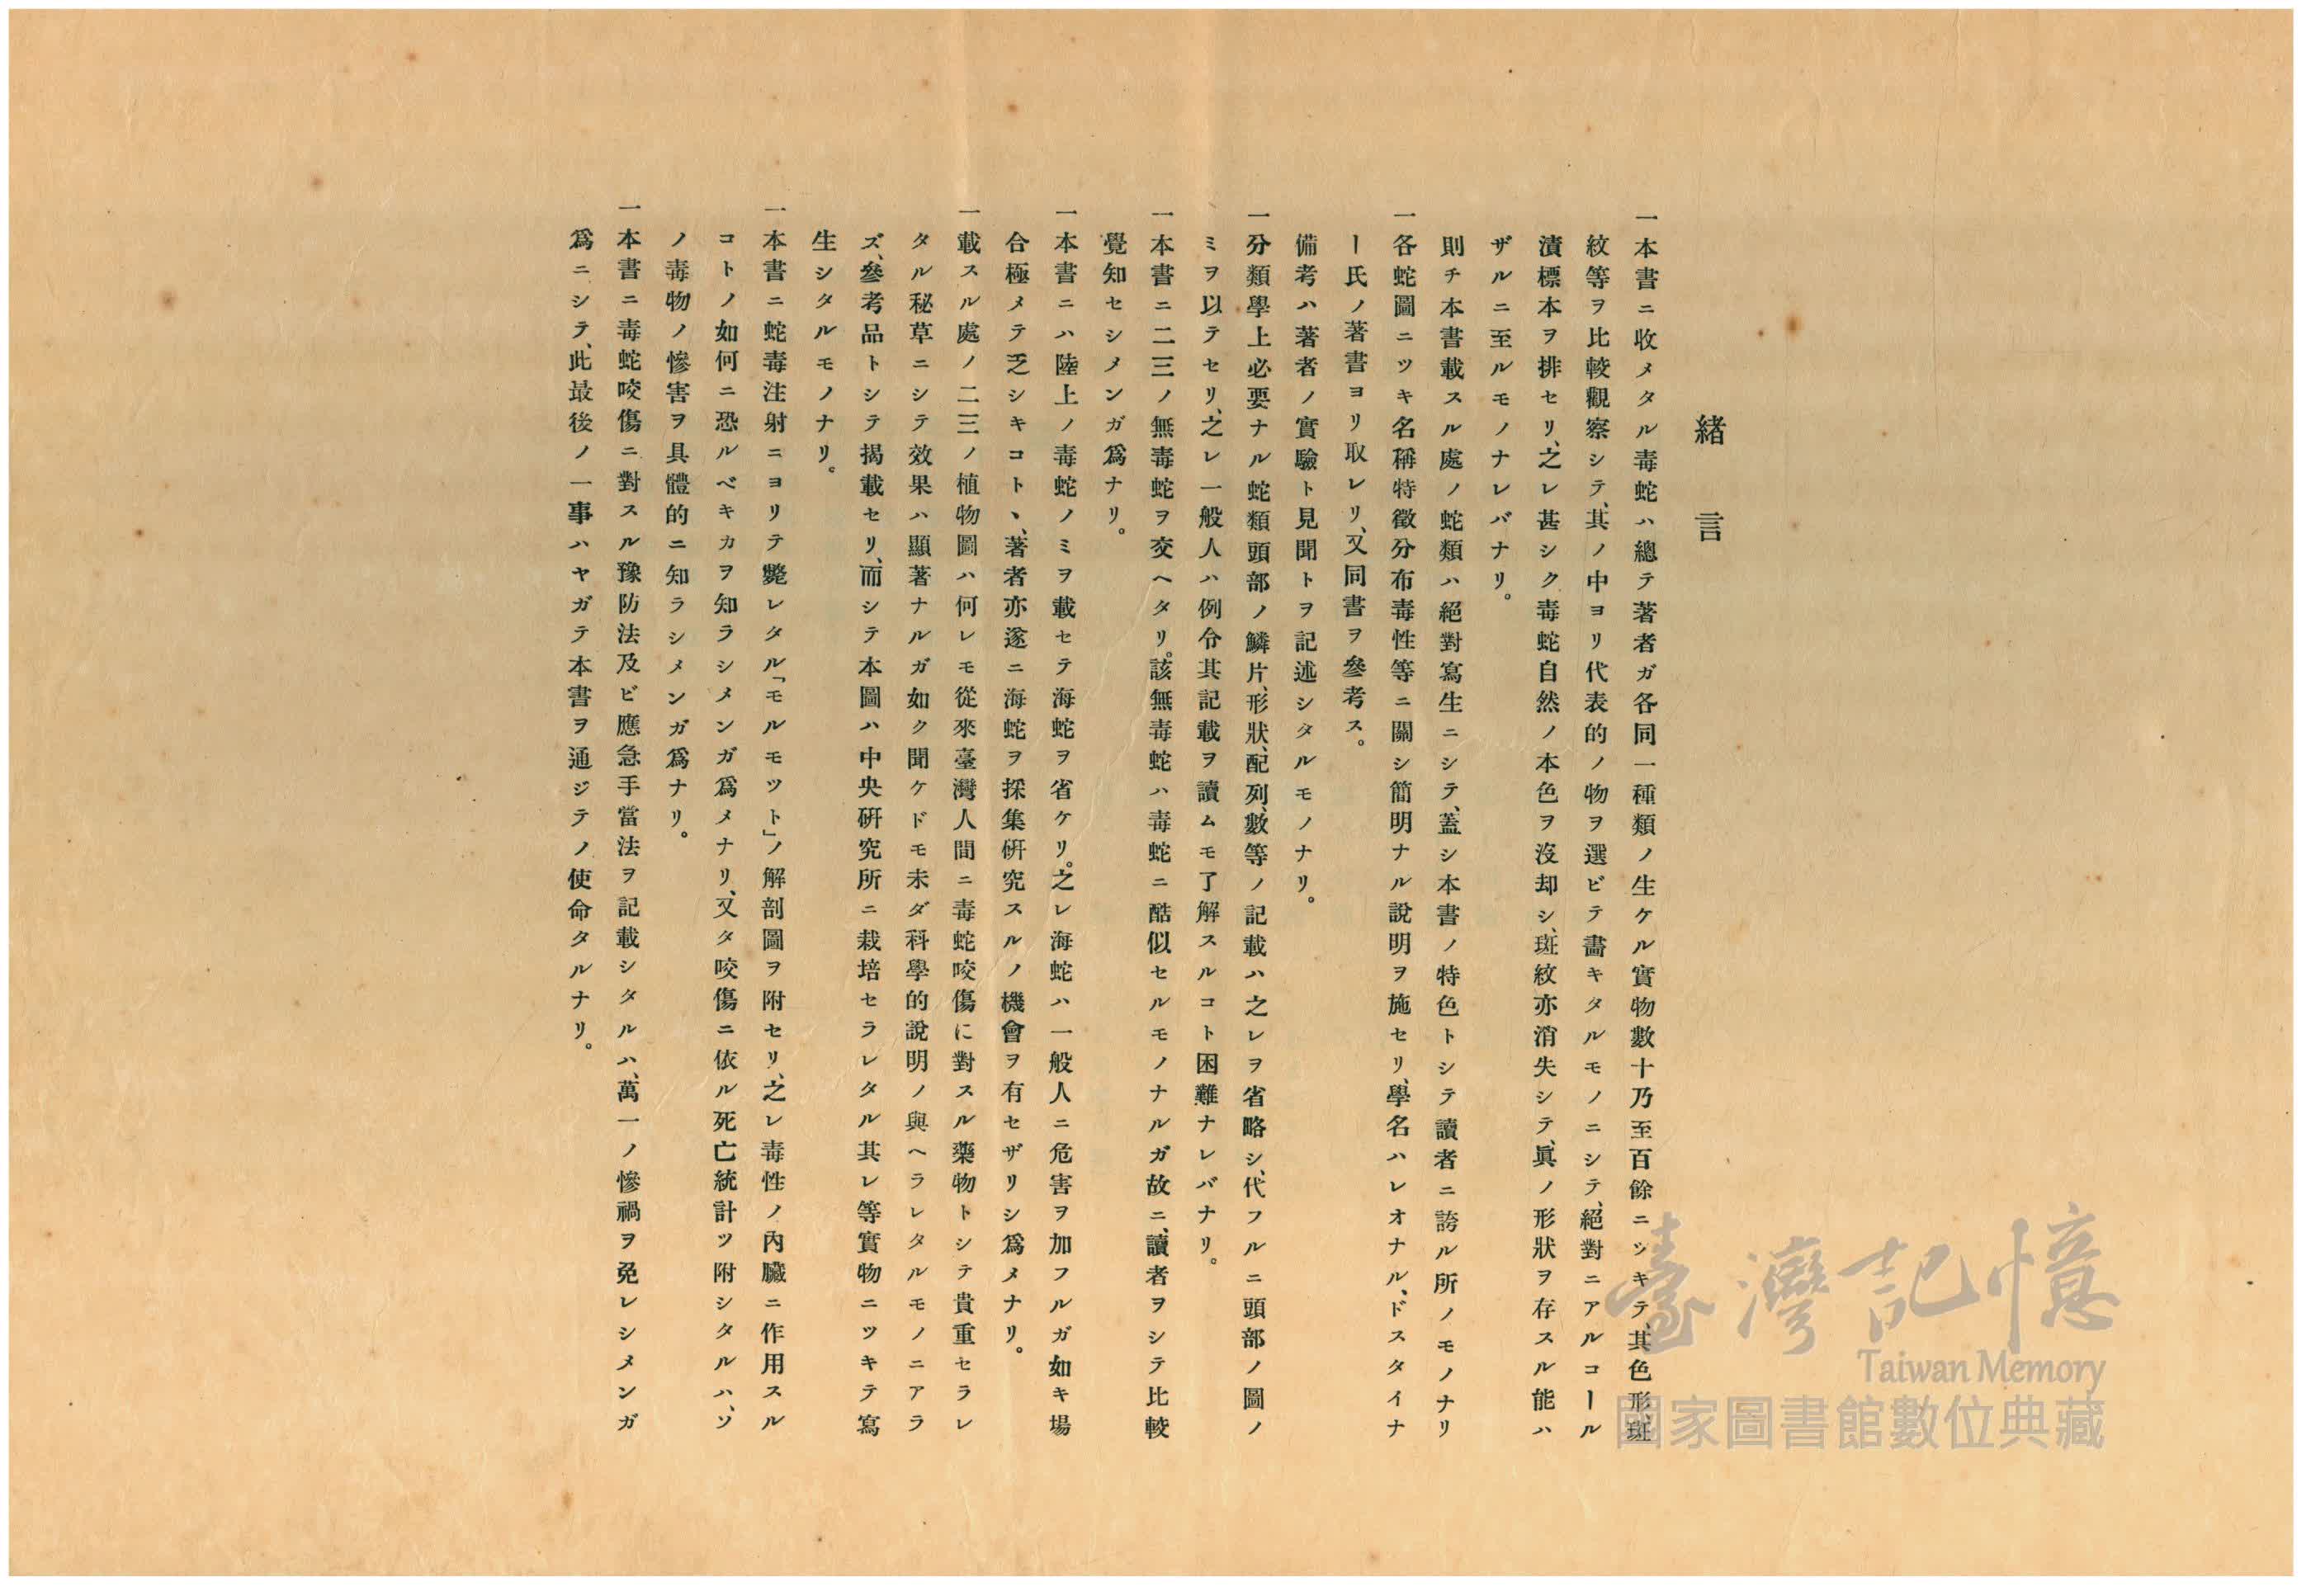 緒言
一本書ニ收メタル毒蛇ハ總テ著者ガ各同一種類ノ生ケル實物數十乃至百餘ニツキテ、其色形、斑
紋等ヲ比較觀察シテ、其ノ中ヨリ代表的ノ物ヲ選ビテ畵キタルモノニシテ、絕對ニアルコール
漬標本ヲ排セリ、之レ甚シク毒蛇自然ノ本色ヲ沒却シ、斑紋亦消失シテ、眞ノ形狀ヲ存スル能ハ
ザルニ至ルモノナレバナリ。
則チ本書載スル處ノ蛇類ハ絕對寫生ニシテ、蓋シ本書ノ特色トシテ讀者ニ誇ル所ノモノナリ
一各蛇圖ニツキ名稱特徵分布毒性等ニ關シ簡明ナル說明ヲ施セリ、學名ハレオナル、ドスタイナ
ー氏ノ著書ヨリ取レリ、又同書ヲ參考ス。
備考ハ著者ノ實驗ト見聞トヲ記述シタルモノナリ。
一分類學上必要ナル蛇類頭部ノ鱗片、形狀、配列、數等ノ記載ハ之レヲ省略シ、代フルニ頭部ノ圖ノ
ミヲ以テセリ、之レ一般人ハ例令其記載ヲ讀ムモ了解スルコト困難ナレバナリ。
一本書ニ二三ノ無毒蛇ヲ交ヘタリ。該無毒蛇ハ毒蛇ニ酷似セルモノナルガ故ニ、讀者ヲシテ比較
覺知セシメンガ爲ナリ。
一本書ニハ陸上ノ毒蛇ノミヲ載セテ海蛇ヲ省ケリ。之レ海蛇ハ一般人ニ危害ヲ加フルガ如キ場
合極メテ乏シキコト丶、著者亦遂ニ海蛇ヲ採集硏究スルノ機會ヲ有セザリシ爲メナリ。
一載スル處ノ二三ノ植物圖ハ何レモ從來臺灣人間ニ毒蛇咬傷に對スル藥物トシテ貴重セラレ
タル秘草ニシテ效果ハ顯著ナルガ如ク聞ケドモ未ダ科學的說明ノ與ヘラレタルモノニアラ
ズ、參考品トシテ揭載セリ、而シテ本圖ハ中央硏究所ニ栽培セラレタル其レ等實物ニツキテ寫
生シタルモノナリ。
一本書ニ蛇毒注射ニヨリテ斃レタル「モルモツト」ノ解剖圖ヲ附セリ、之レ毒性ノ內臟ニ作用スル
コトノ如何ニ恐ルベキカヲ知ラシメンガ爲メナリ、又タ咬傷ニ依ル死亡統計ツ附シタルハ、ソ
ノ毒物ノ慘害ヲ具體的ニ知ラシメンガ爲ナリ。
一本書ニ毒蛇咬傷ニ對スル豫防法及ビ應急手當法ヲ記載シタルハ、萬一ノ慘禍ヲ免レシメンガ
爲ニシテ、此最後ノ一事ハヤガテ本書ヲ通ジテノ使命タルナリ。
臺灣記憶
Taiwan Memory
國家圖書館數位典藏